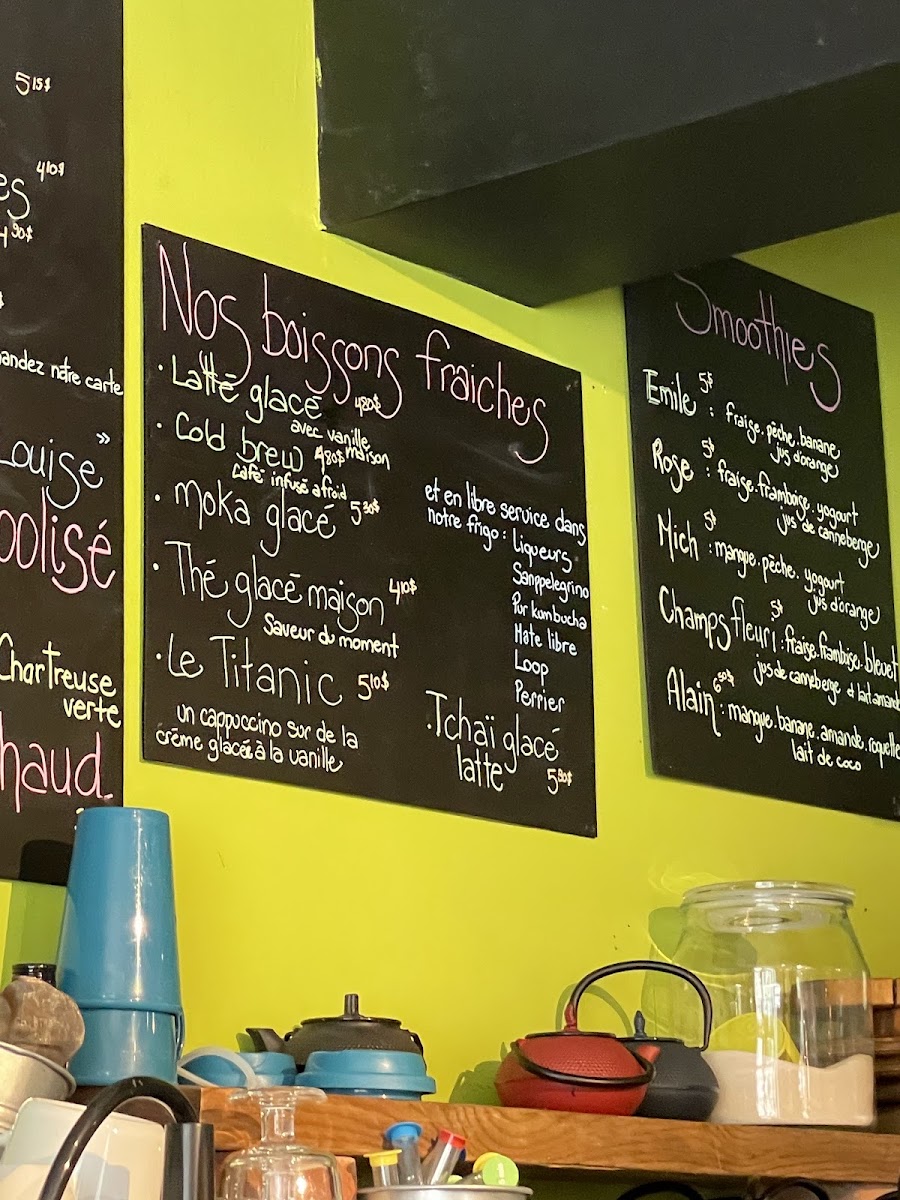 5 15$
4 10$
es
4 90$
andez notre carte
Louise"
oolisé
Chartreuse
verte
haud
Nos boissons fraiches
· Latté glacé 4 80$
avec vanille
maison
· Cold brew 4 80$
Café infusé a froid
· Moka glacé 5 30$
· Thé glacé maison 4 10$
Saveur du moment
· Le Titanic 5 10$
un cappuccino sur de la
crème glacée à la vanille
et en libre service dans
notre frigo : Liqueurs
Sanppelegrino
Pur kombucha
Hâte libre
Loop
Perrier
· Tchaï glacé
latte 5 80$
Smoothies
Emile 5$ : fraise. pêche. banane
jus d'orange
Rose 5$ : fraise. framboise. yogourt
jus de canneberge
Mich 5$ : mangue. pêche. yogourt
jus d'orange
Champs fleuri 5$ : fraise. framboise. bleuet
jus de canneberge
Alain 6 50$ : mangue. banane. amande. roquette
lait de coco